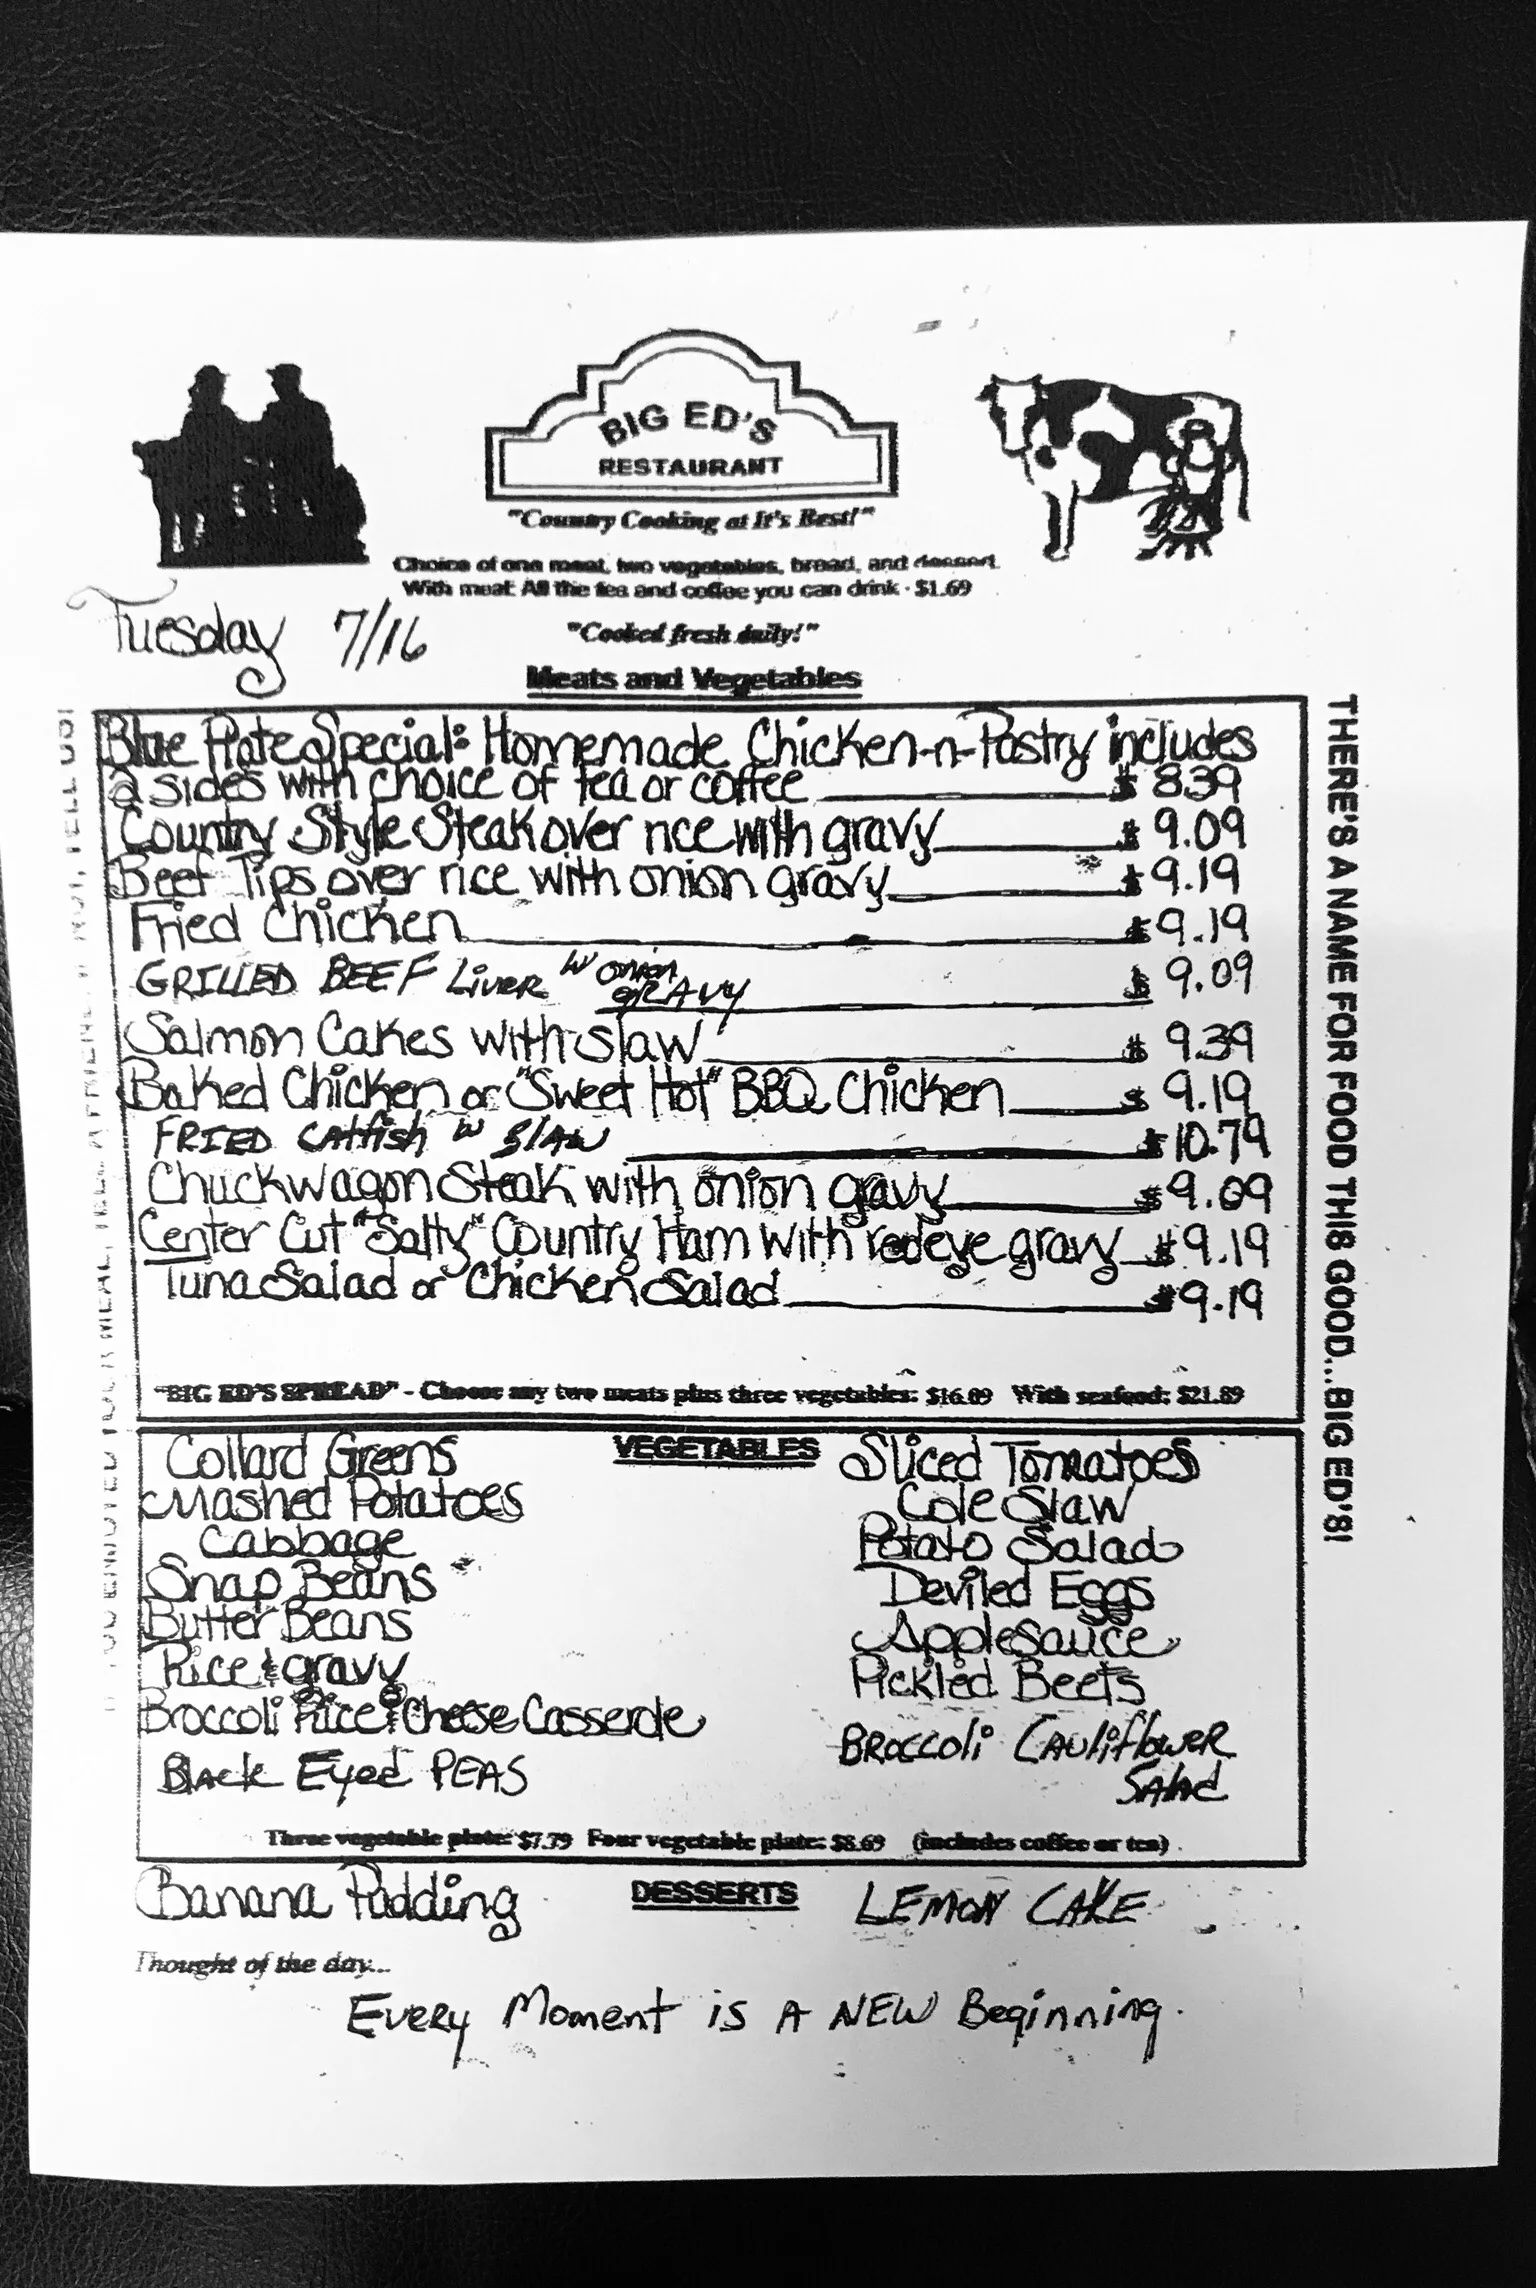 BIG ED'S
RESTAURANT
"Country Cooking at It's Best!"
Choice of one meat, two vegetables, bread, and dessert.
With meat: All the tea and coffee you can drink - $1.69
Tuesday 7/16
"Cooked fresh daily!"
Meats and Vegetables
Blue Plate Special: Homemade Chicken-n-Pastry includes
2 sides with choice of tea or coffee $8.39
Country Style Steak over rice with gravy $9.09
Beef Tips over rice with onion gravy $9.19
Fried Chicken $9.19
GRILLED BEEF LiveR W onion GRAVY $9.09
Salmon Cakes with slaw $9.39
Baked Chicken or "Sweet Hot" BBQ Chicken $9.19
FRIED Catfish W SlAW $10.79
Chuckwagon Steak with onion gravy $9.09
Center Cut "Salty" Country Ham with redeye gravy $9.19
Tuna Salad or Chicken Salad $9.19
"BIG ED'S SPREAD" - Choose any two meats plus three vegetables: $16.09 With seafood: $21.89
VEGETABLES
Collard Greens
Mashed Potatoes
Cabbage
Snap Beans
Butter Beans
Rice & gravy
Broccoli Rice & Cheese Casserole
Black Eyed PEAS
Sliced Tomatoes
Cole Slaw
Potato Salad
Deviled Eggs
Applesauce
Pickled Beets
BROCCOLi CAUliflOWER
SAlad
Three vegetable plate: $7.79 Four vegetable plate: $8.69 (includes coffee or tea)
DESSERTS
Banana Pudding
LEMON CAKE
Thought of the day...
EVERY MOMENT is A NEW Beginning.
THERE'S A NAME FOR FOOD THIS GOOD...BIG ED'S!
YOU ENJOYED YOUR MEAL, TELL A FRIEND, IF NOT, TELL US!